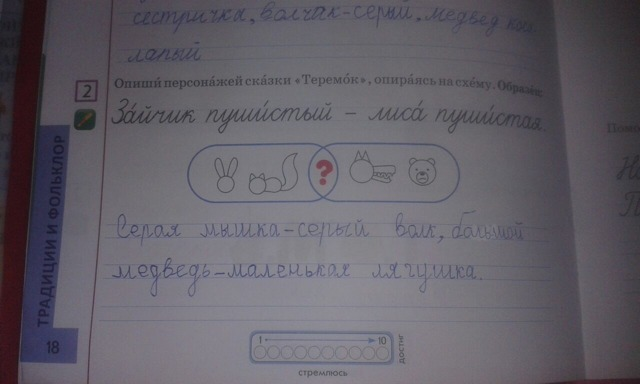 сестричка, волчак-серый, медвед
лапый
2
Опиши́ персона́жей ска́зки «Теремо́к», опира́ясь на схе́му. Образе́ц:
За́йчик пуши́стый – лиса́ пуши́стая.
?
Серая мышка-серый волк, большой
медведь-маленькая лягушка.
ТРАДИЦИИ И ФОЛЬКЛОР
18
1 10
достиг
стремлюсь